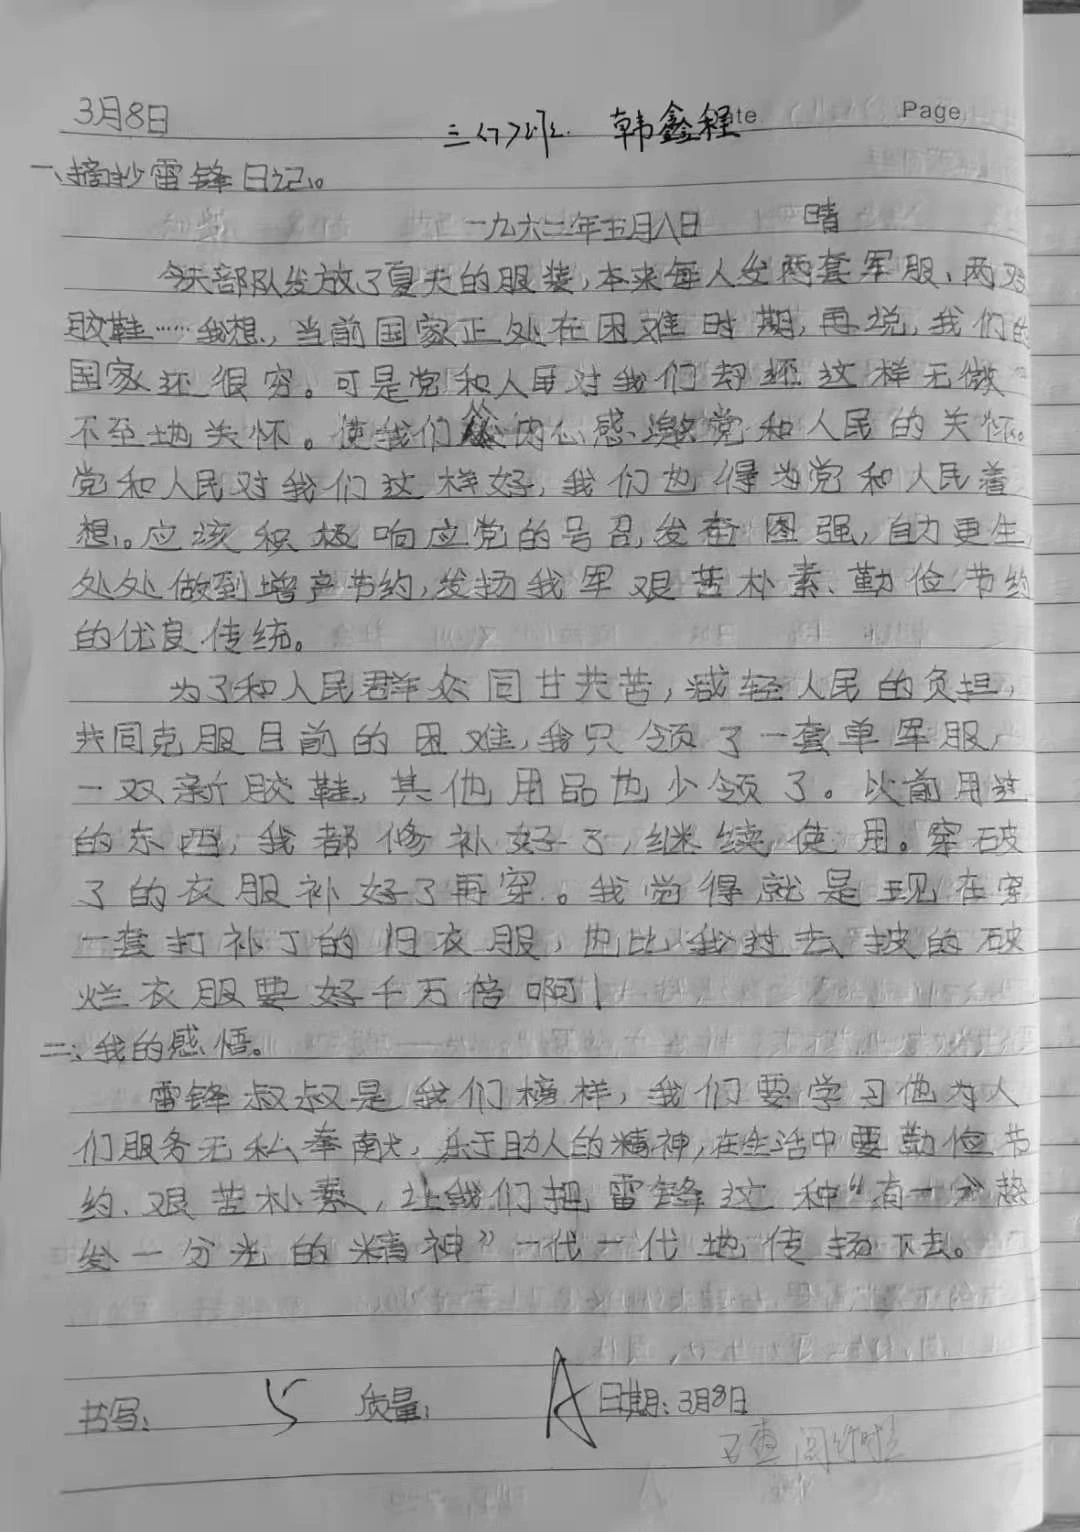 3月8日
三(7)班 韩鑫程 te Page
一、摘抄雷锋日记。
一九六二年五月八日 晴
今天部队发放了夏天的服装,本来每人发两套军服、两双
胶鞋……我想,当前国家正处在困难时期,再说,我们的
国家还很穷。可是党和人民对我们却还这样无微
不至地关怀。使我们从内心感激党和人民的关怀。
党和人民对我们这样好,我们也得为党和人民着
想。应该积极响应党的号召,发奋图强,自力更生
处处做到增产节约,发扬我军艰苦朴素、勤俭节约
的优良传统。
为了和人民群众同甘共苦,减轻人民的负担,
共同克服目前的困难,我只领了一套单军服,
一双新胶鞋,其他用品也少领了。以前用过
的东西,我都修补好了,继续使用。穿破
了的衣服补好了再穿。我觉得就是现在穿
一套打补丁的旧衣服,也比我过去披的破
烂衣服要好千万倍啊!
二、我的感悟。
雷锋叔叔是我们榜样,我们要学习他为人
们服务无私奉献,乐于助人的精神,在生活中要勤俭节
约、艰苦朴素,让我们把雷锋这种“有一分热
发一分光的精神”一代一代地传扬下去。
书写: 5 质量: A 日期:3月8日